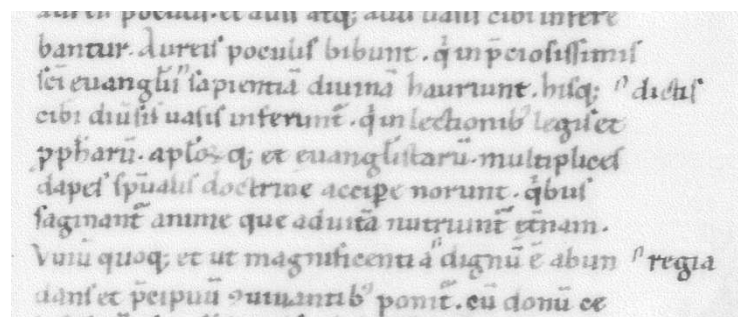 aureis poculis. et aliis atq; aliis uasis cibi infere
bantur. Aureis poculis bibunt. q̇ in p̄ciosissimis
sc̄i euangłii sapientiā diuinā hauriunt. hisq; dictis
cibi diūsis uasis inferunt̄. q̇ in lectionib⁹ legis et
ꝓph̄arū. apl̄oꝝ q; et euangłistarū. multiplices
dapes sp̄ualis doctrine accipe norunt. q̇bus
saginant̄ anime que ad uitā nutriunt̄ et̄nam.
Vinū quoq; et ut magnificentia dignū ē abun regia
dans et p̄cipuū ꝯuiuantib⁹ ponit̄. cū donū ce